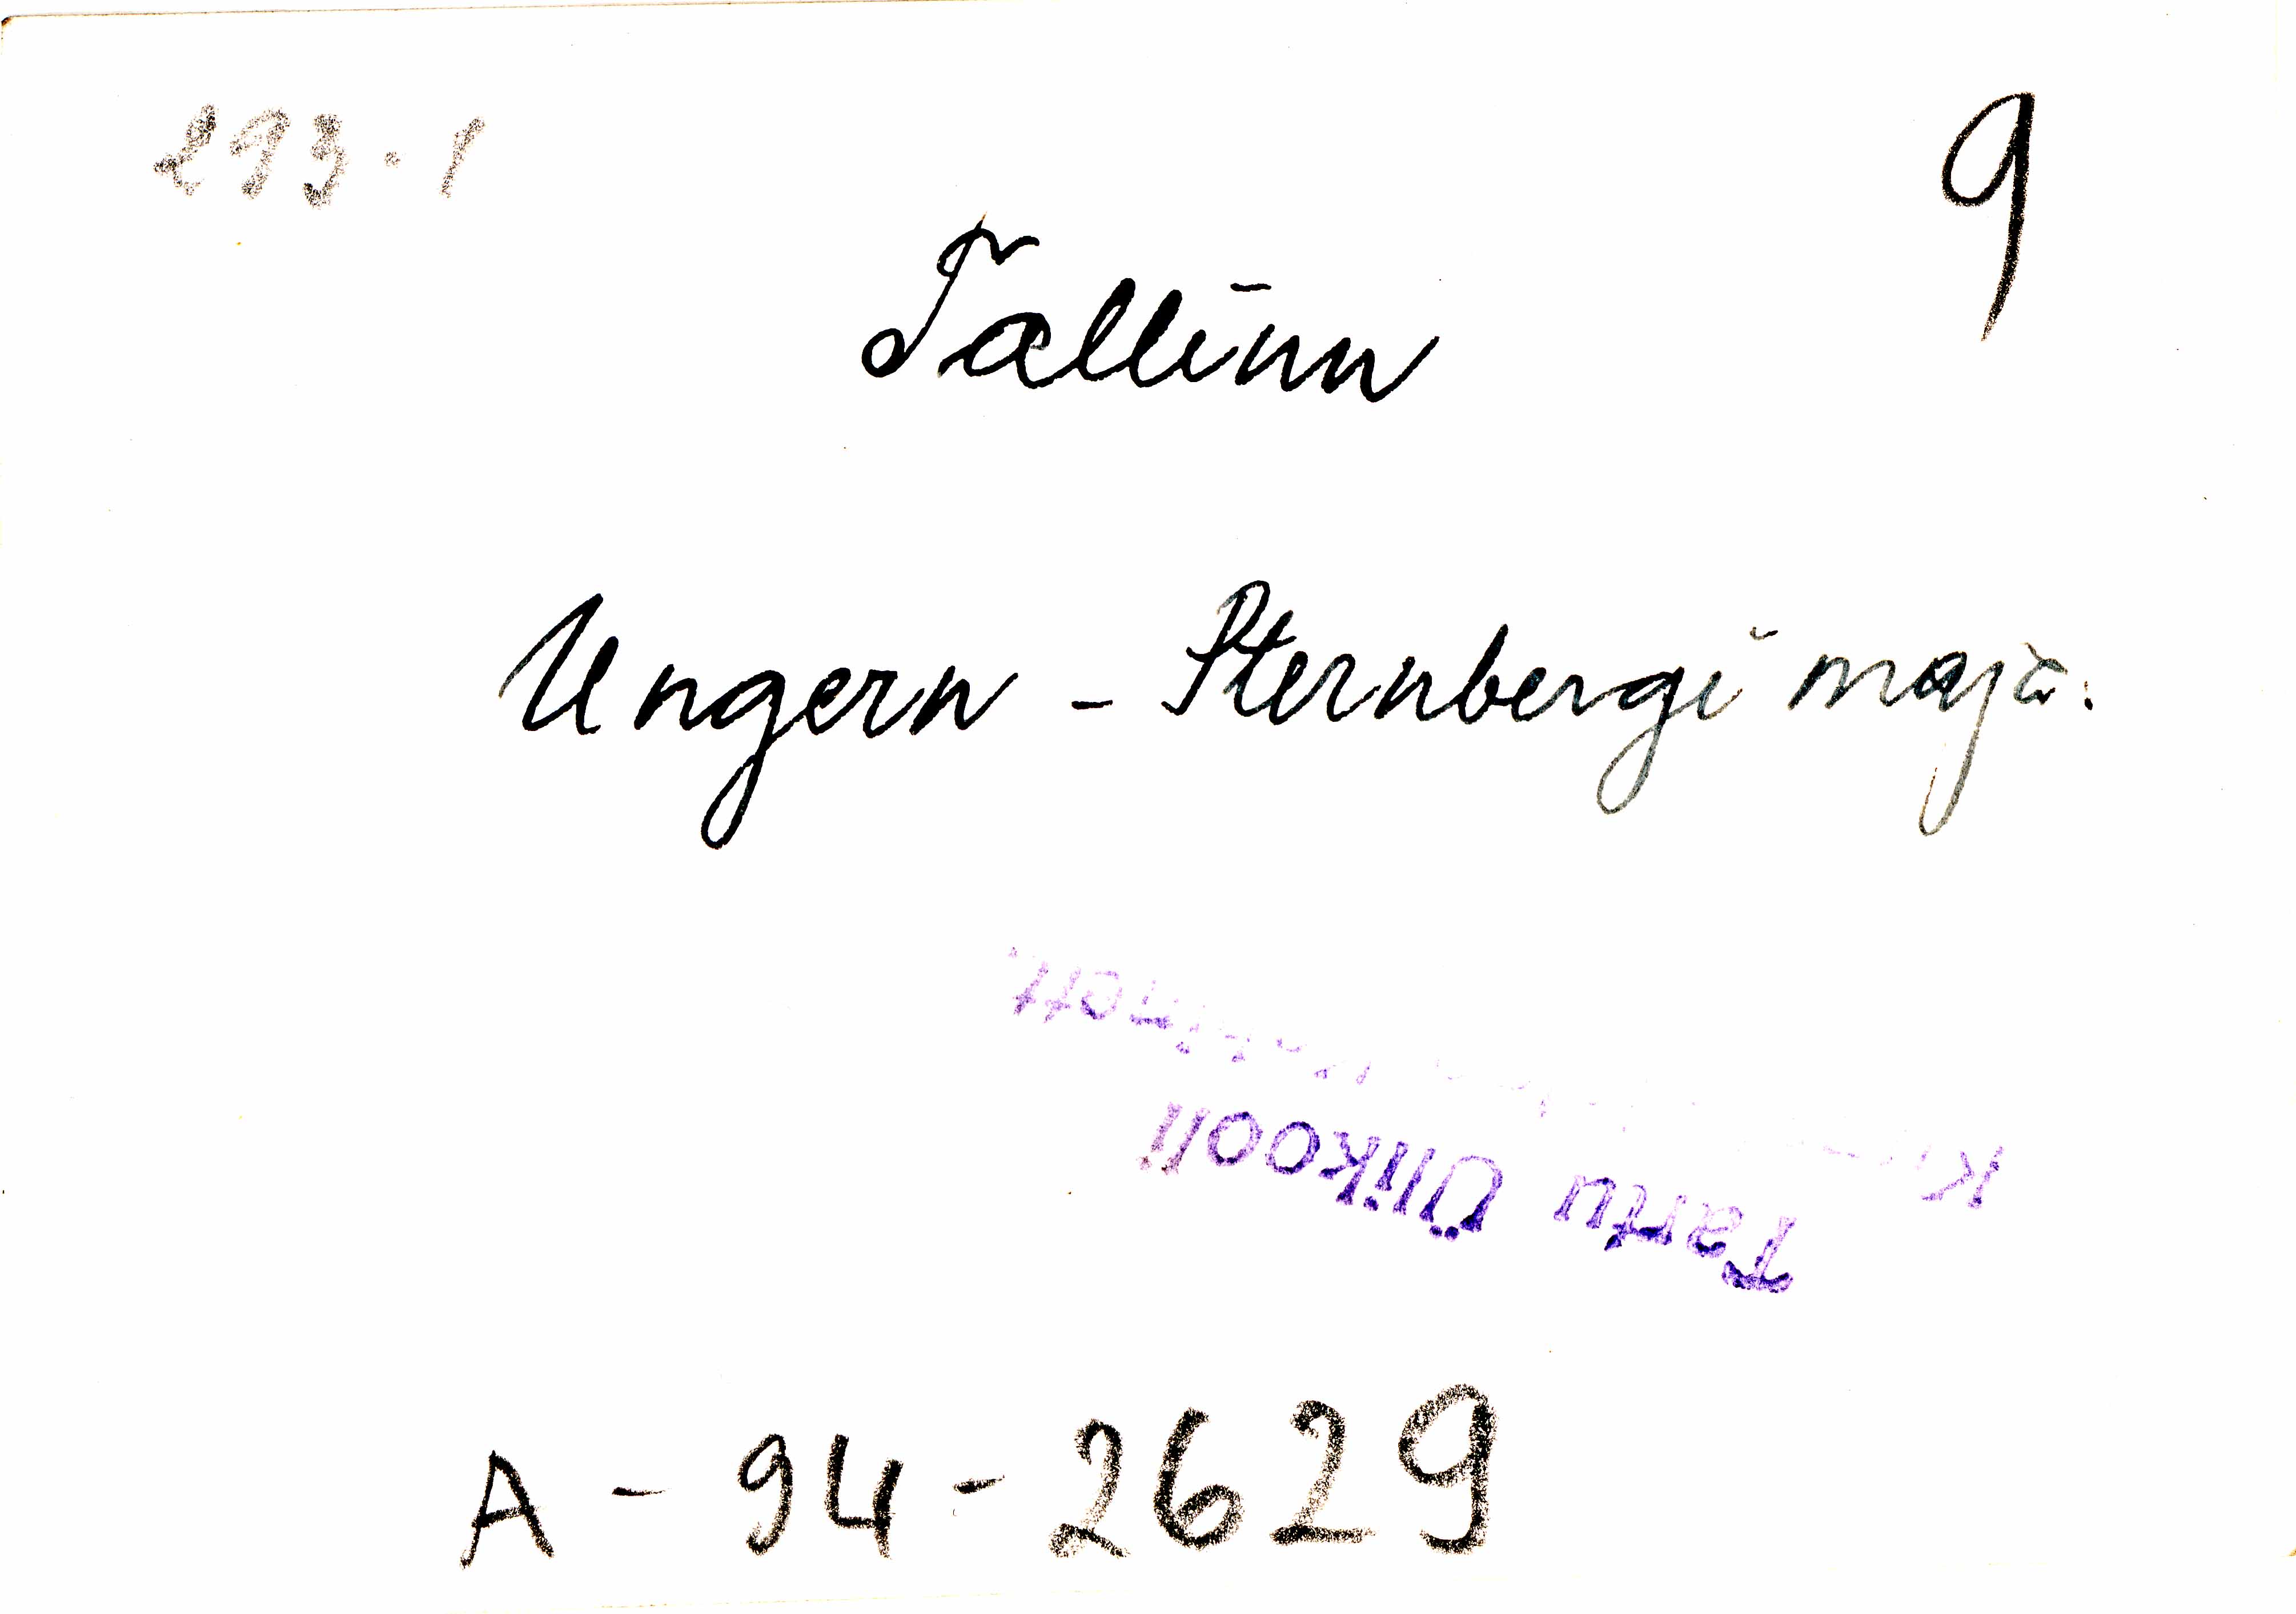 293.1
9
Tallinn
Ungern - Sternbergi maja.
Tartu Ülikooli
A - 94 - 2629